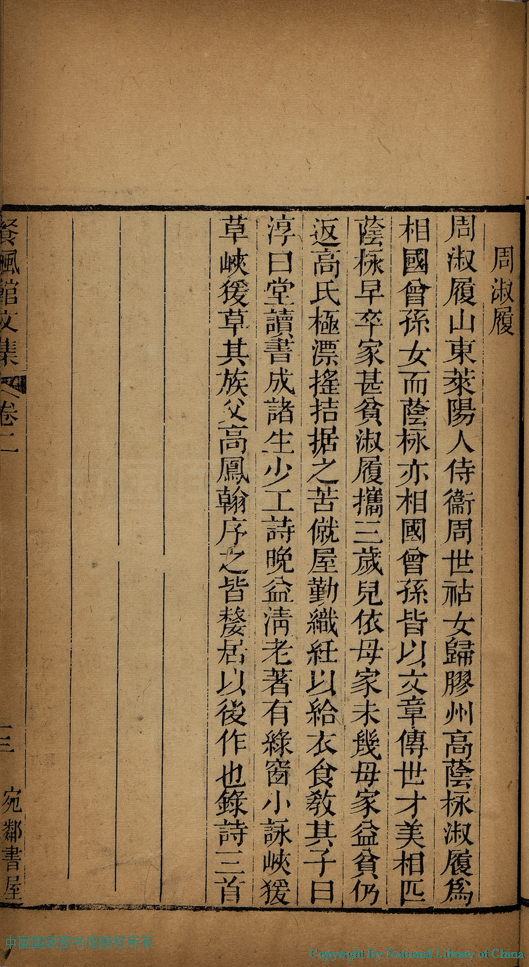 周淑履
周淑履山東萊陽人侍衞周世祜女歸膠州高蔭棶淑履爲
相國曾孫女而蔭棶亦相國曾孫皆以文章傳世才美相匹
蔭棶早卒家甚貧淑履攜三歲兒依母家未幾母家益貧仍
返高氏極漂搖拮据之苦僦屋勤織紝以給衣食敎其子曰
淳曰堂讀書成諸生少工詩晩益淸老著有綠窗小詠峽猨
草峽猨草其族父高鳳翰序之皆嫠居以後作也錄詩三首
餐楓館文集 卷二 三 宛鄰書屋
中国国家图书馆版权所有
Copyright By National Library of China